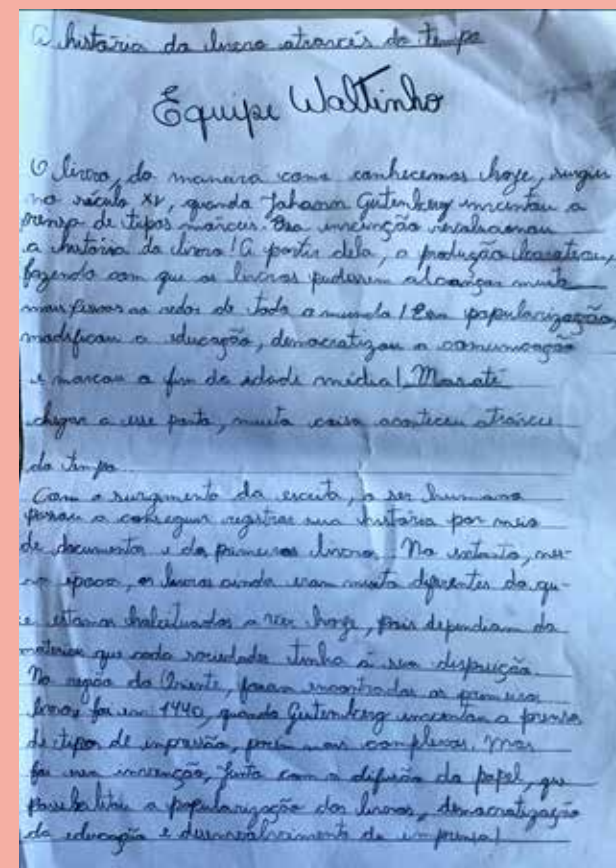 A história do livro através do tempo
Equipe Waltinho
O livro, da maneira como conhecemos hoje, surgiu
no século XV, quando Johann Gutenberg inventou a
prensa de tipos móveis. Essa invenção revolucionou
a história do livro! A partir dela, a produção barateou,
fazendo com que os livros pudessem alcançar muito
mais pessoas ao redor de todo o mundo! Essa popularização
modificou a educação, democratizou a comunicação
e marcou o fim da idade média! Mas até
chegar a esse ponto, muita coisa aconteceu através
do tempo
Com o surgimento da escrita, o ser humano
passou a conseguir registrar sua história por meio
de documentos e dos primeiros livros. No entanto, nes-
sa época, os livros ainda eram muito diferentes do qu-
e estamos habituados a ver hoje, pois dependiam do
material que cada sociedade tinha à sua disposição.
Na região do Oriente, foram encontrados os primeiros
livros, foi em 1440, quando Gutenberg inventou a prensa
de tipos de impressão, porém mais complexos. Mas
foi sua invenção, junto com a difusão do papel, que
possibilitou a popularização dos livros, democratização
da educação e desenvolvimento da imprensa!